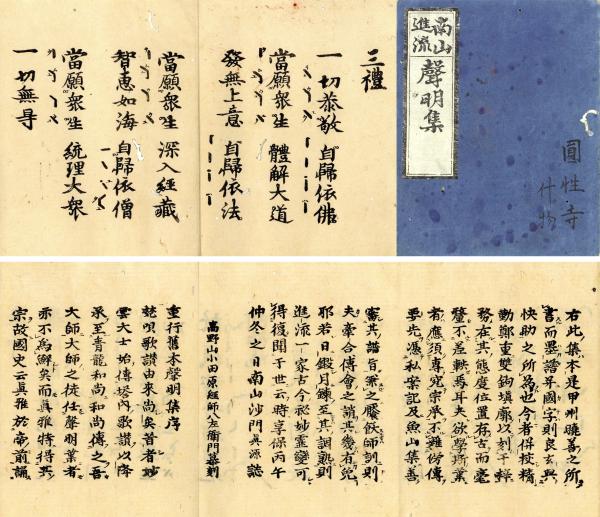 南山
進流
聲明集
圓性寺
什物
三禮
一切恭敬 自歸依佛
當願眾生 體解大道
發無上意 自歸依法
當願眾生 深入經藏
智恵如海 自歸依僧
當願眾生 統理大眾
一切無㝵
右此集本是甲州曉善之所
書而墨譜并國字則良玄與
快助之所為也今者倂校精
勤鄭重雙鉤填廓以刻于梓
務在其態度位置存古而毫
釐不差軼焉耳夫欲學斯業
者應須專究宗承不雜傍傳
要先憑私案記及魚山集善
審其譜旨兼之厭飫師訓則
夫牽合傅會之誚其幾有免
耶若日鍛月鍊至其調熟則
進流一家古今祕妙靈變可
得復聞于世云時享保丙午
仲冬之日南山沙門真源誌
高野山小田原經師八左衞門募刻
重行舊本聲明集序
梵唄歌讃由來尚矣昔者妙
雲大士始傳塔內歌讃以降
承至青龍和尚和尚傳之吾
大師大師之徒任聲明業者
亦不為鮮矣而真雅特得其
宗故國史云真雅於帝前誦